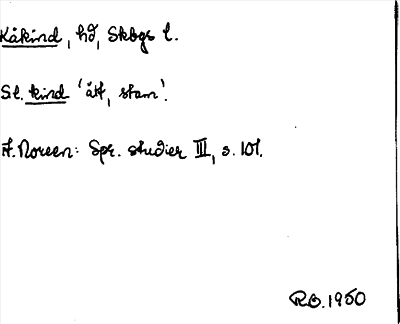 Kåkind, hd, Skbgs l.
Sl. kind 'ätt, stam'.
A. Noreen: Spr. studier III, s. 101.
RB. 1950